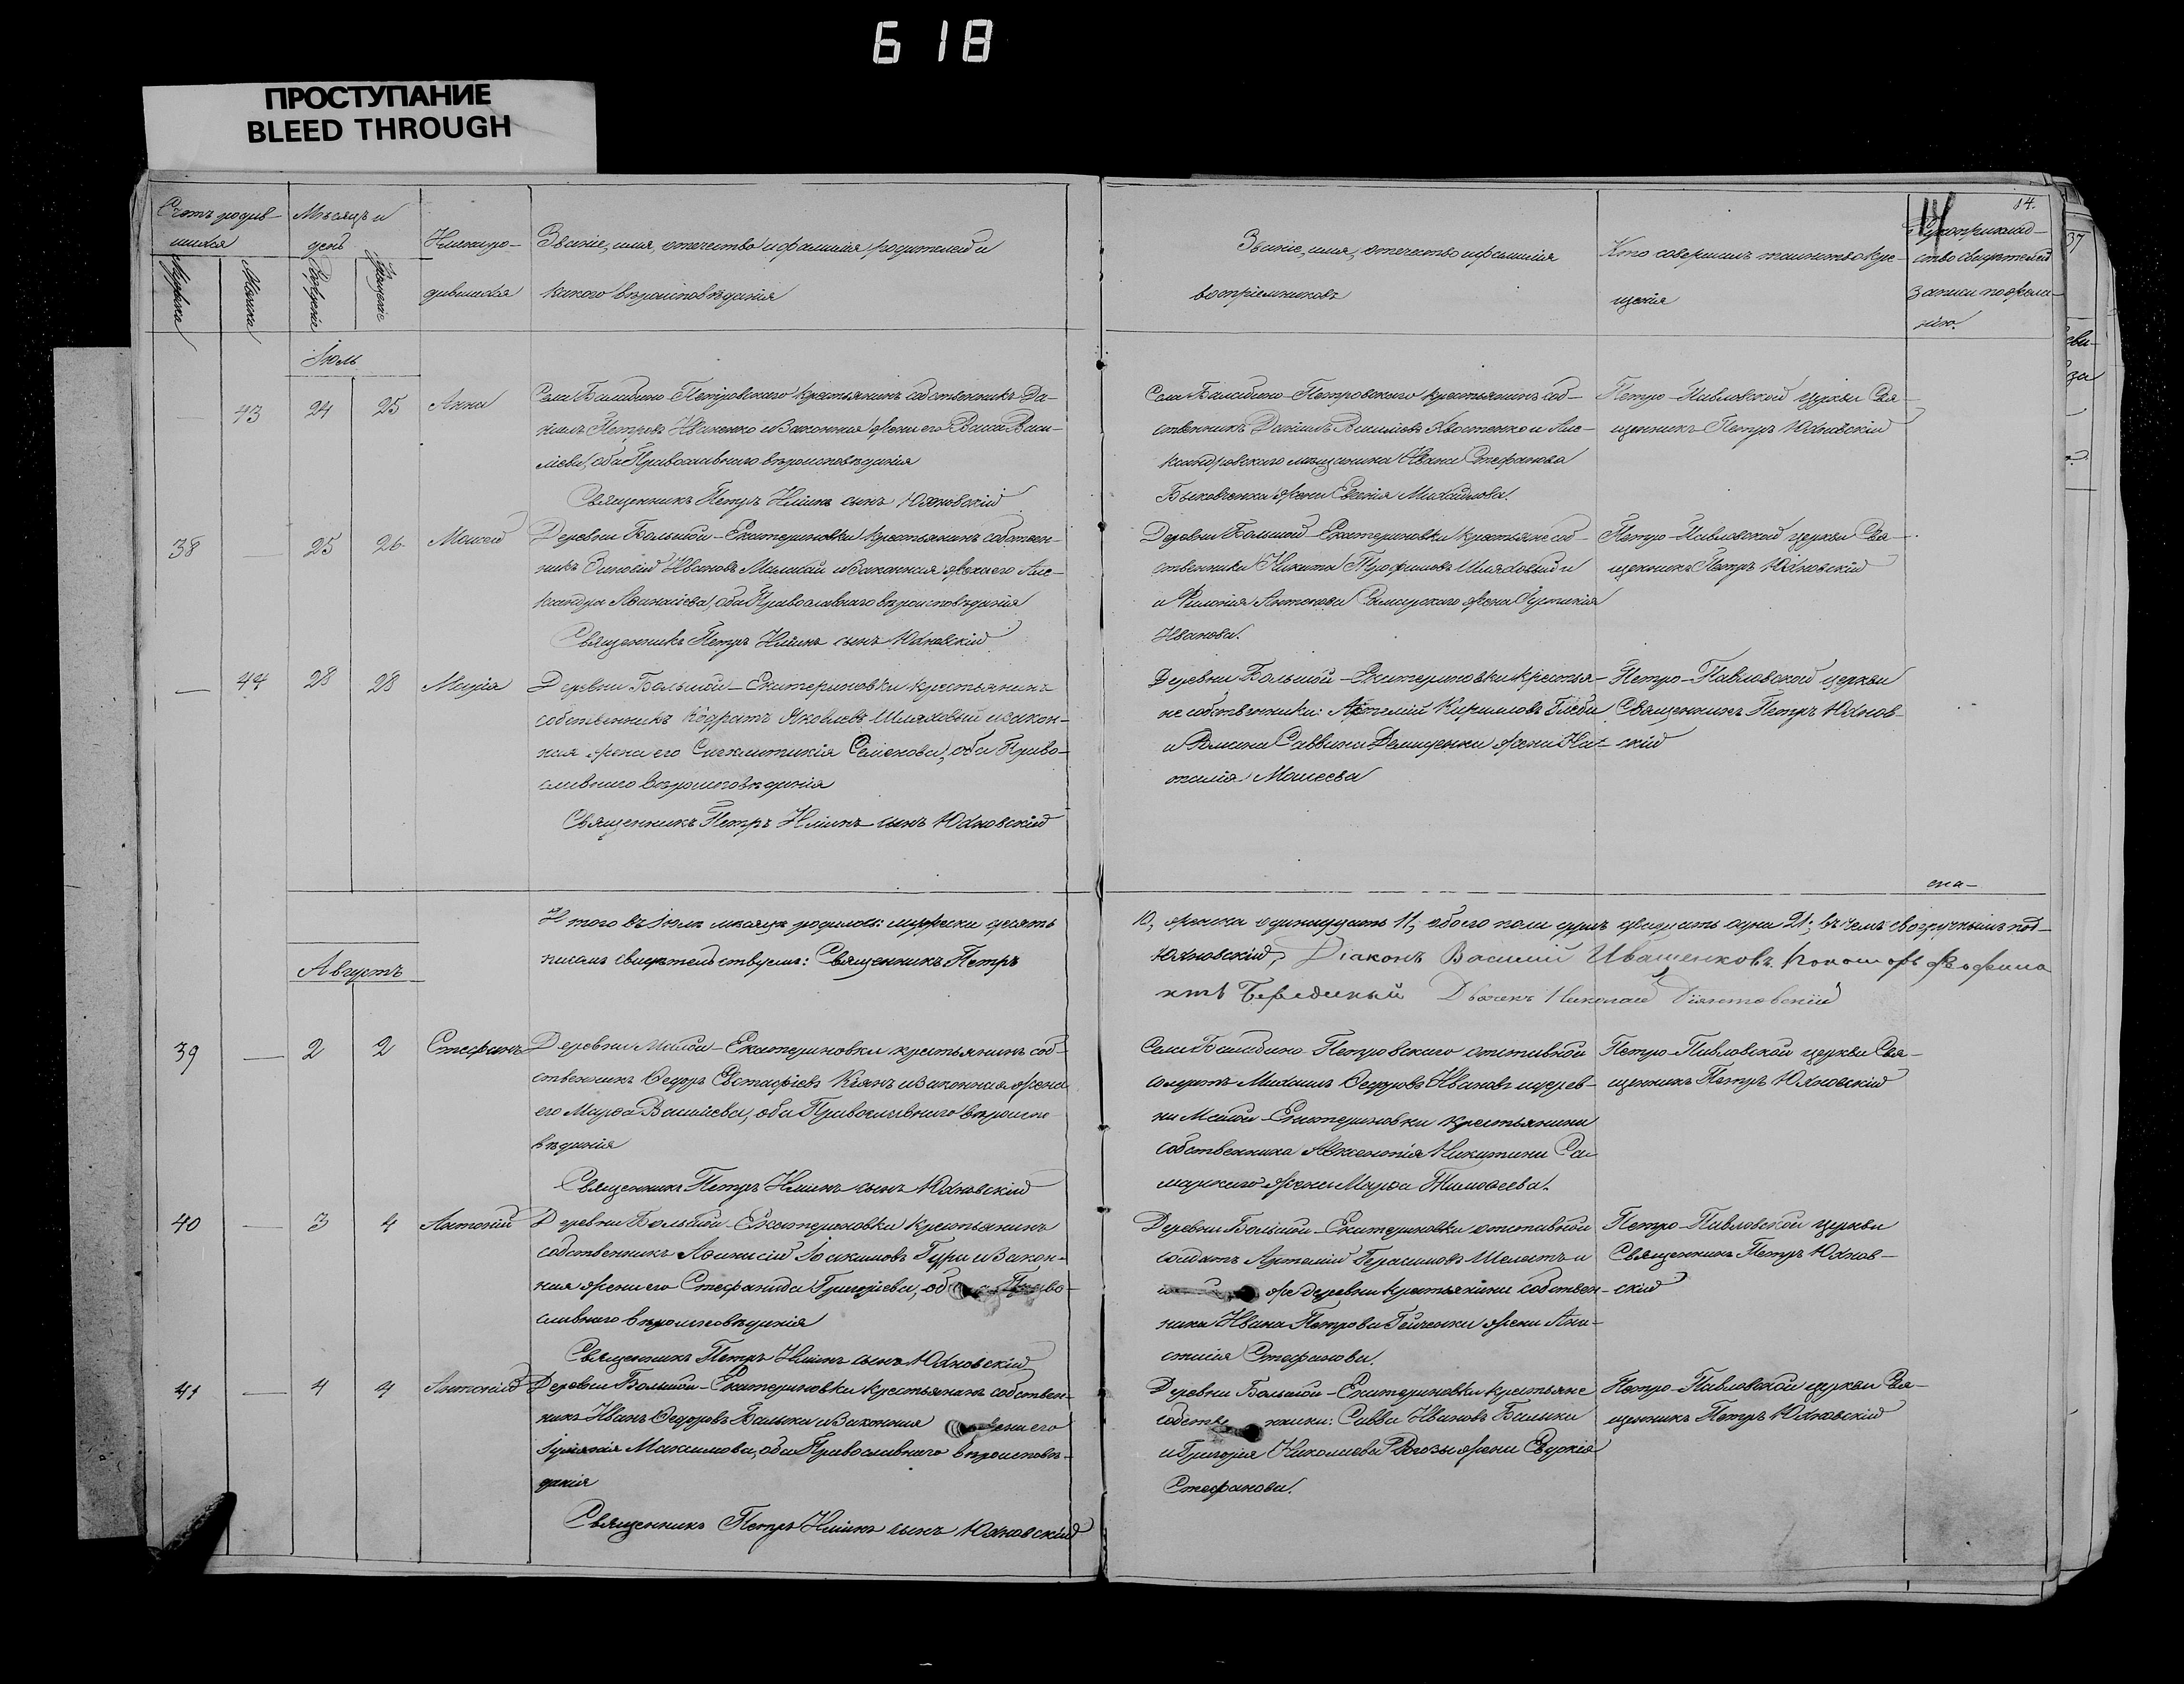 618
ПРОСТУПАНИЕ
BLEED THROUGH
Счетъ родив-
шихся
Мужска
Женска
Мѣсяцъ и
день
Рожденіе
Крещеніе
Имена ро-
дившихся
Званіе, имя, отечество и фамилія родителей и
какого вѣроисповѣданія
Званіе, имя, отечество и фамилія
воспріемниковъ
Кто совершилъ таинство кре-
щенія
14.
Рукоприклад-
ство свидѣтелей
записи по жела-
нію.
37
Іюль
43 24 25 Анна
Села Балабино-Петровскаго крестьянинъ собственникъ Да-
ніилъ Петровъ Иваненко и законная жена его Васса Васи-
ліева, оба Православнаго вѣроисповѣданія
Священникъ Петръ Іліинъ сынъ Юхновскій
Села Балабино-Петровскаго крестьянинъ соб-
ственникъ Даніилъ Василіевъ Хвостенко и Але-
ксандровскаго мѣщанина Ивана Стефанова
Быковченка жена Евгенія Михайлова.
Петро-Павловской церкви Свя-
щенникъ Петръ Юхновскій
38 — 25 26 Моисей
Деревни Большой-Екатериновки крестьянинъ собствен-
никъ Зиновій Ивановъ Малахай и законная жена его Але-
ксандра Аѳанасіева, оба Православнаго вѣроисповѣданія
Священникъ Петръ Іліинъ сынъ Юхновскій
Деревни Большой-Екатериновки крестьяне соб-
ственники Никита Трофимовъ Шляховый и
и Филонія Антонова Самарскаго жена
Иванова.
Петро-Павловской церкви Свя-
щенникъ Петръ Юхновскій
— 44 28 28 Марія
Деревни Большой-Екатериновки крестьянинъ
собственникъ Кодратъ Яковлевъ Шляховый и закон-
ная жена его Сигклитикія Семенова, оба Право-
славнаго вѣроисповѣданія
Священникъ Петръ Іліинъ сынъ Юхновскій
Деревни Большой-Екатериновки крестья-
не собственники: Артемій Кирилловъ Глеба
и Романа Саввина Демиденка жена На-
талія Моисеева
Петро-Павловской церкви
Священникъ Петръ Юхнов-
скій
Итого въ Іюлѣ мѣсяцѣ родилось: мужеска десять
10, женска одинадцать 11, обоего пола душъ двадцать одна 21; въ чемъ своеручнымъ под-
писомъ свидѣтельствуемъ: Священникъ Петръ
Юхновскій, Діаконъ Василій Иващенковъ. Пономарь Феофила
ктъ Бередный Дьячекъ Николай
Августъ
39 — 2 2 Стефанъ
Деревни Малой-Екатериновки крестьянинъ соб-
ственникъ Ѳедоръ Евстафіевъ Кіянъ и законная жена
его Марѳа Василіева, оба Православнаго вѣроиспо
вѣданія
Священникъ Петръ Іліинъ сынъ Юхновскій
Села Балабино-Петровскаго отставной
солдатъ Михаилъ Ѳедоровъ Ивановъ и дерев-
ни Малой-Екатериновки крестьянина
собственника Авксентія Никитина Са-
марскаго жена Марѳа Тимоѳеева.
Петро-Павловской церкви Свя-
щенникъ Петръ Юхновскій
40 — 3 4 Антоній
Деревни Большой-Екатериновки крестьянинъ
собственникъ Аѳанасій Іоакимовъ Гура и закон-
ная жена его Стефанида Григоріева, оба Право-
славнаго вѣроисповѣданія
Священникъ Петръ Іліинъ сынъ Юхновскій
Деревни Большой-Екатериновки отставной
солдатъ Артемій Герасимовъ Шелестъ и
же деревни крестьянина собствен-
ника Ивана Петрова Гейченка жена Ана-
стасія Стефанова.
Петро-Павловской церкви
Священникъ Петръ Юхнов-
скій
41 — 4 4 Антоній
Деревни Большой-Екатериновки крестьянинъ собствен-
никъ Иванъ Ѳедоровъ Балыка и законная жена его
Іуліанія Максимова, оба Православнаго вѣроисповѣ-
данія
Священникъ Петръ Іліинъ сынъ Юхновскій
Деревни Большой-Екатериновки крестьяне
собственники: Савва Ивановъ Балыка
и Григорія Николаева Рогозы жена Евдокія
Стефанова.
Петро-Павловской церкви Свя-
щенникъ Петръ Юхновскій